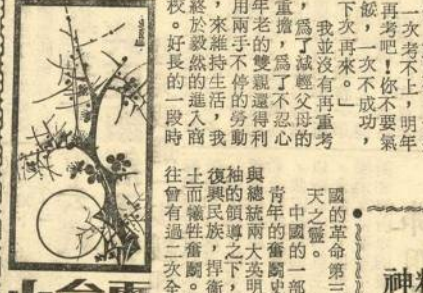 一次考不上，明年
再考吧！你不要氣
餒，一次不成功，
下次再來。」
我並沒有再重考
，爲了減輕父母的
重擔，爲了不忍心
年老的雙親還得利
用兩手不停的勞動
，來維持生活，我
終於毅然的進入商
校。好長的一段時
神
國的革命第三
天之靈。
中國的一部
青年的奮鬪史
與總統兩大英明
袖的領導之下，
復興民族，捍衛
土而犧牲奮鬪。
往曾有過二次全